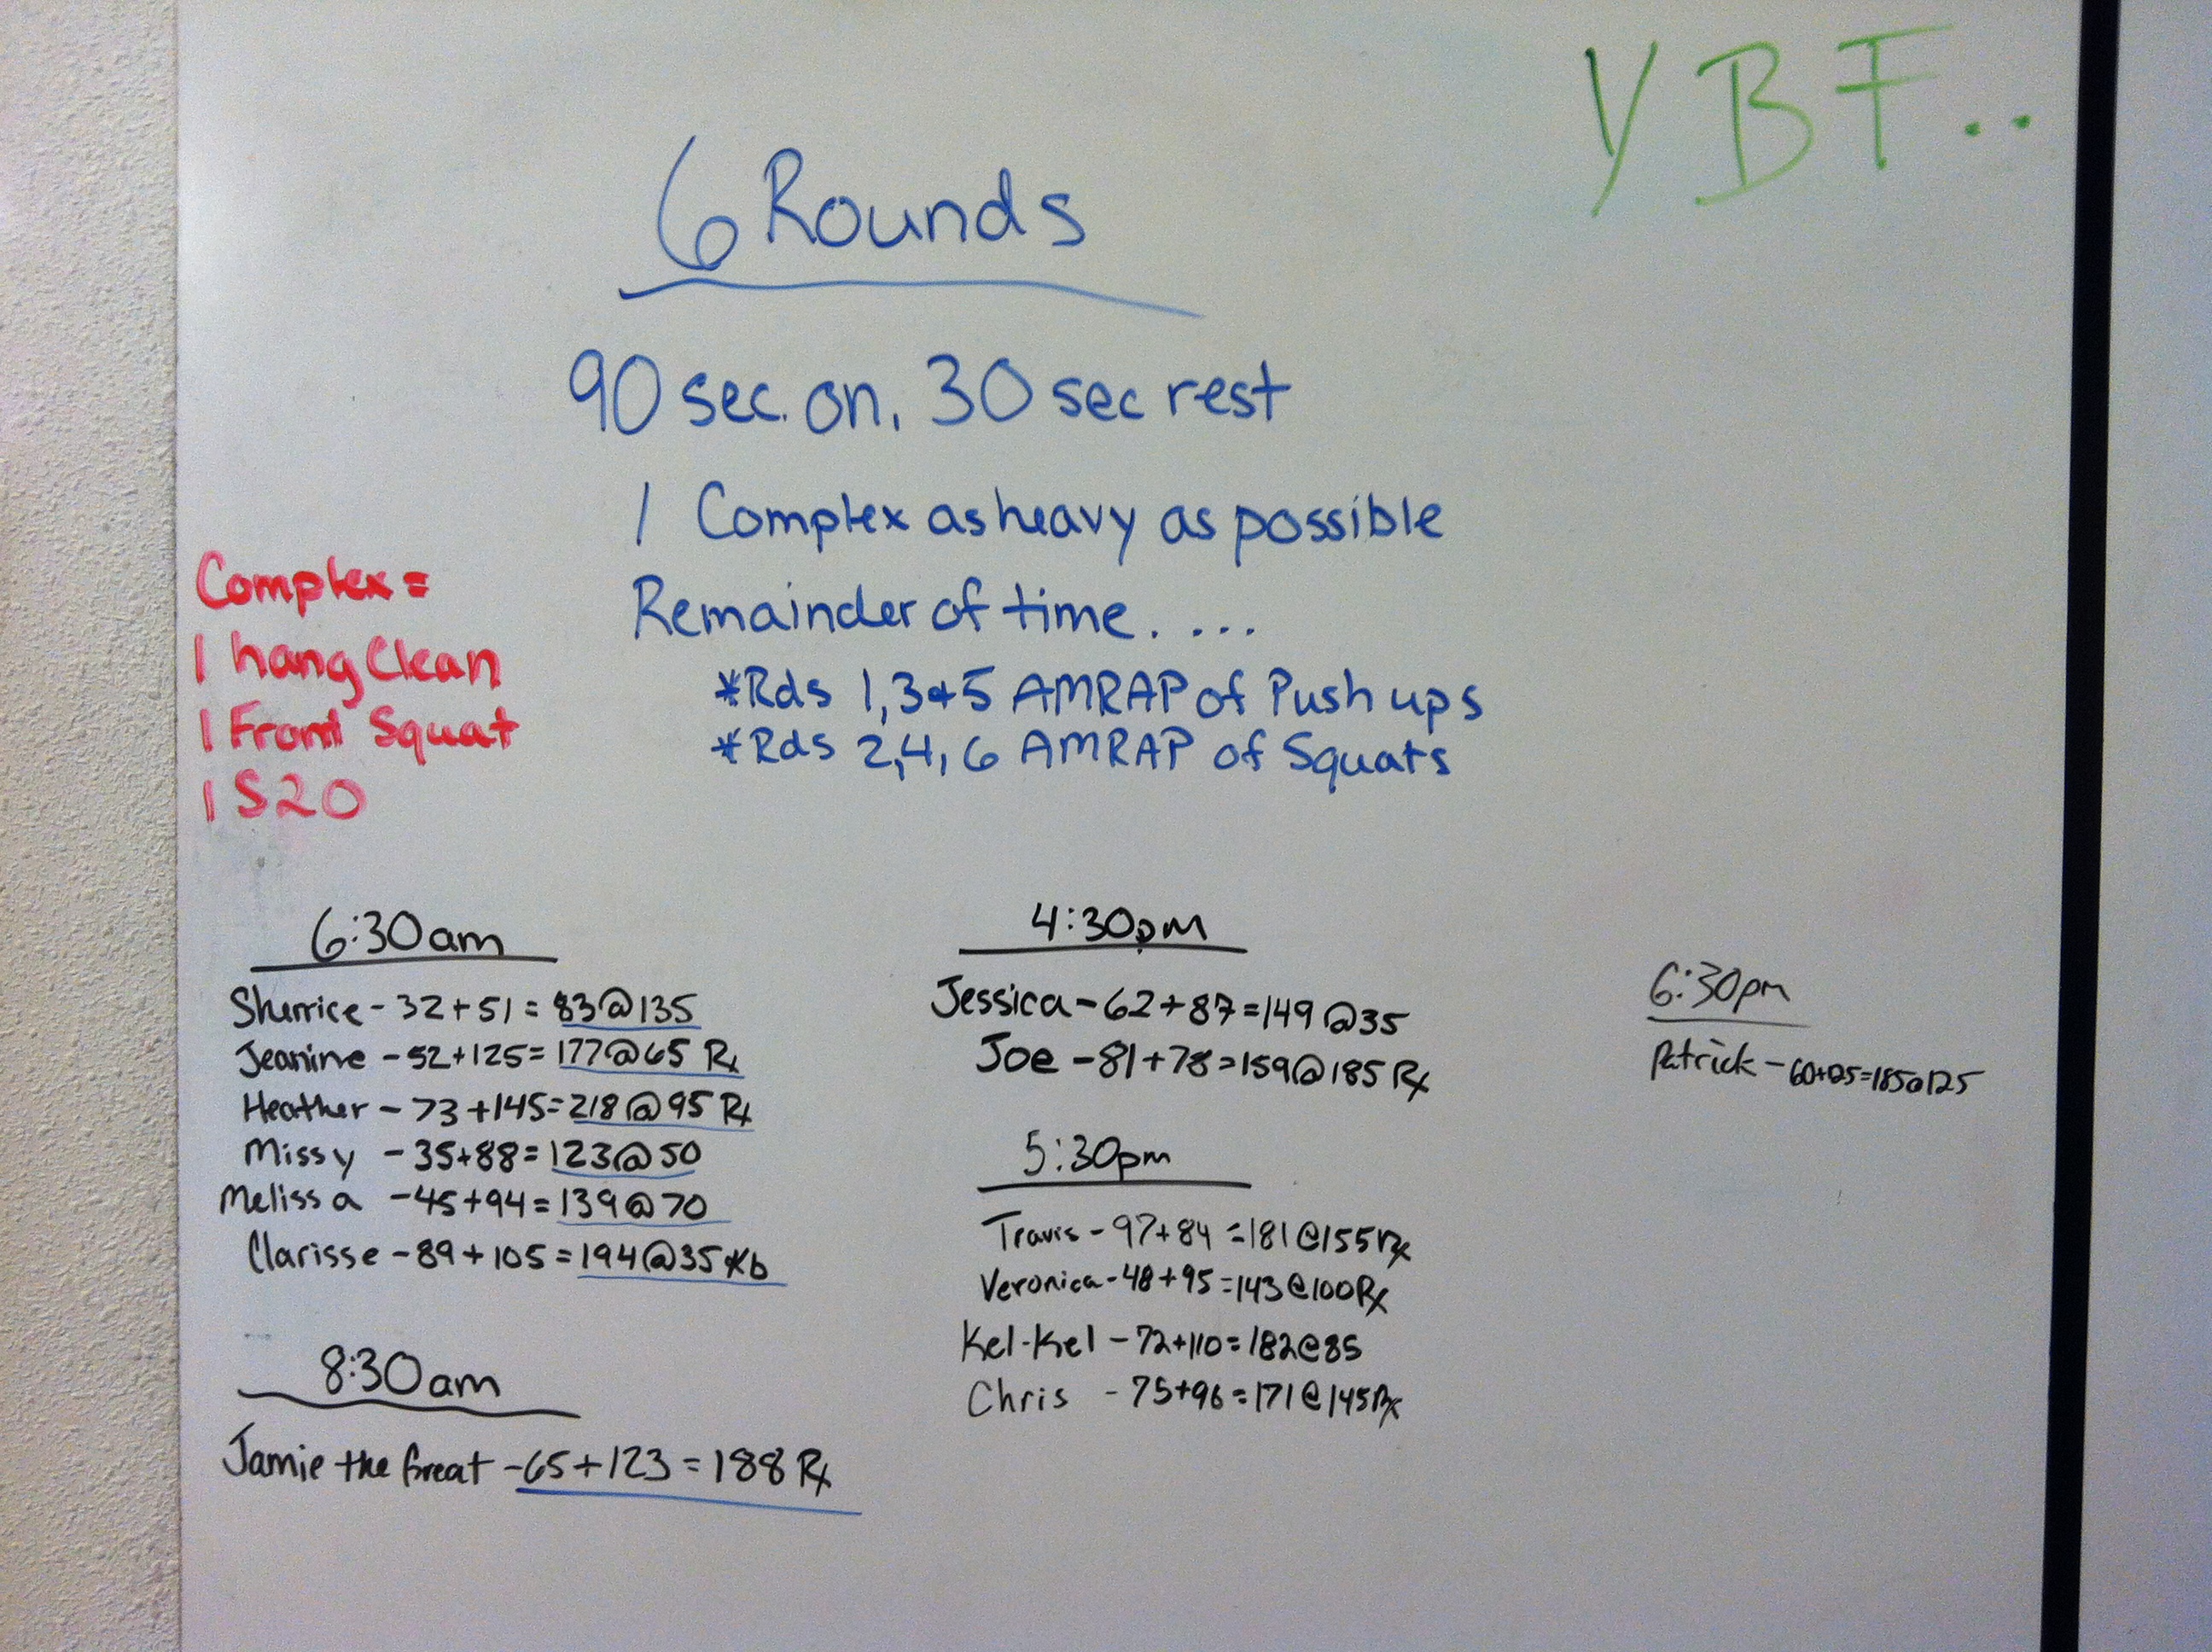 YBF..
6 Rounds
90 sec. on, 30 sec rest
1 Complex as heavy as possible
Remainder of time. ...
*Rds 1,3+5 AMRAP of Push ups
*Rds 2,4,6 AMRAP of Squats
Complex =
1 hang Clean
1 Front Squat
1 S2O
6:30am
Sherrice - 32+51 = 83@135
Jeanine - 52+125= 177@65 Rx
Heather - 73+145= 218@95 Rx
Missy - 35+88= 123@50
Melissa - 45+94= 139@70
Clarisse - 89+105 = 194@35*Kb
8:30am
Jamie the Great - 65+123 = 188 Rx
4:30pm
Jessica - 62+87=149@35
Joe - 81+78=159@185 Rx
5:30pm
Travis - 97+84 =181@155Rx
Veronica - 48+95=143@100Rx
Kel-Kel - 72+110=182@85
Chris - 75+96=171@145Rx
6:30pm
Patrick - 60+125=185@125